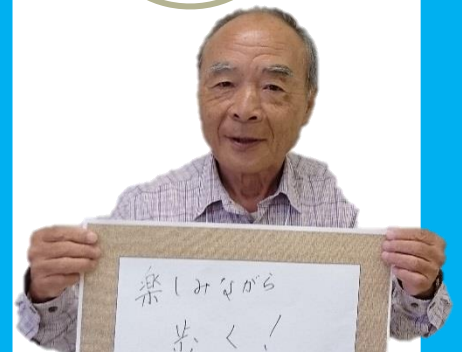 楽しみながら
歩く!